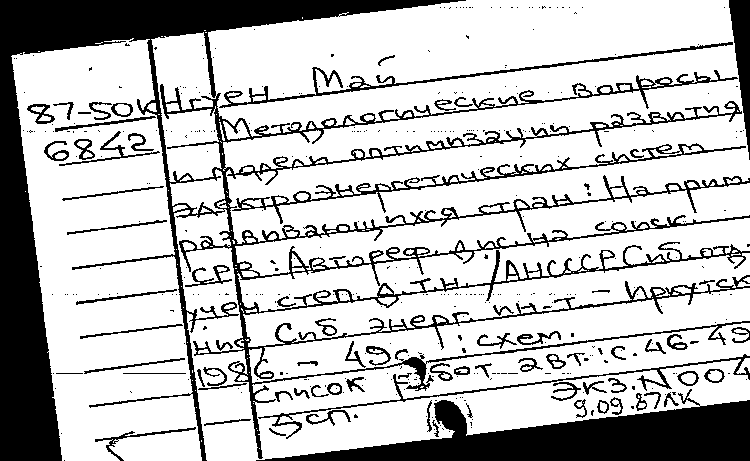 87-50к Нгуен Май
6842 Методологические вопросы
и модели оптимизации развития
электроэнергетических систем
развивающихся стран: На прим.
СРВ: Автореф. дис. на соиск.
учен. степ. д.т.н. / АН СССР Сиб. отд-
ние, Сиб. энерг. ин-т. - Иркутск
1986. - 49с. : схем.
Список работ авт.: с. 46-49
Дсп. Экз. N 004
9.09.87 ЛК